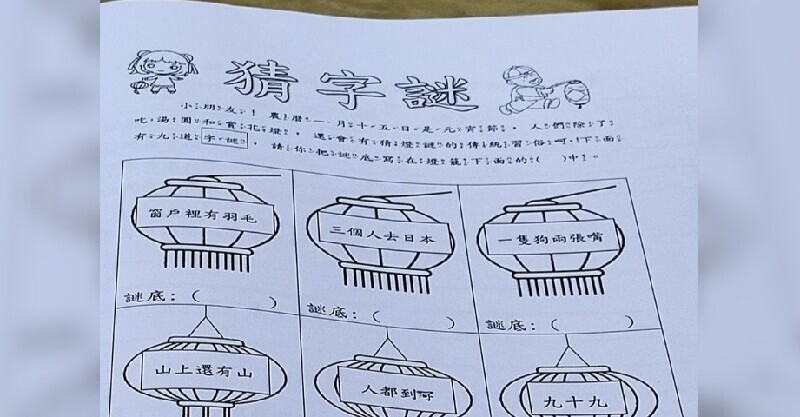 猜字謎
小朋友！農曆一月十五日是元宵節，人們除了
吃湯圓和賞花燈，還會有猜燈謎的傳統習俗呵！下面
有九道字謎，請你把謎底寫在燈籠下面的（　）中。
窗戶裡有羽毛
三個人去日本
一隻狗兩張嘴
謎底：（　　）
謎底：（　　）
謎底：（　　）
山上還有山
人都到可
九十九